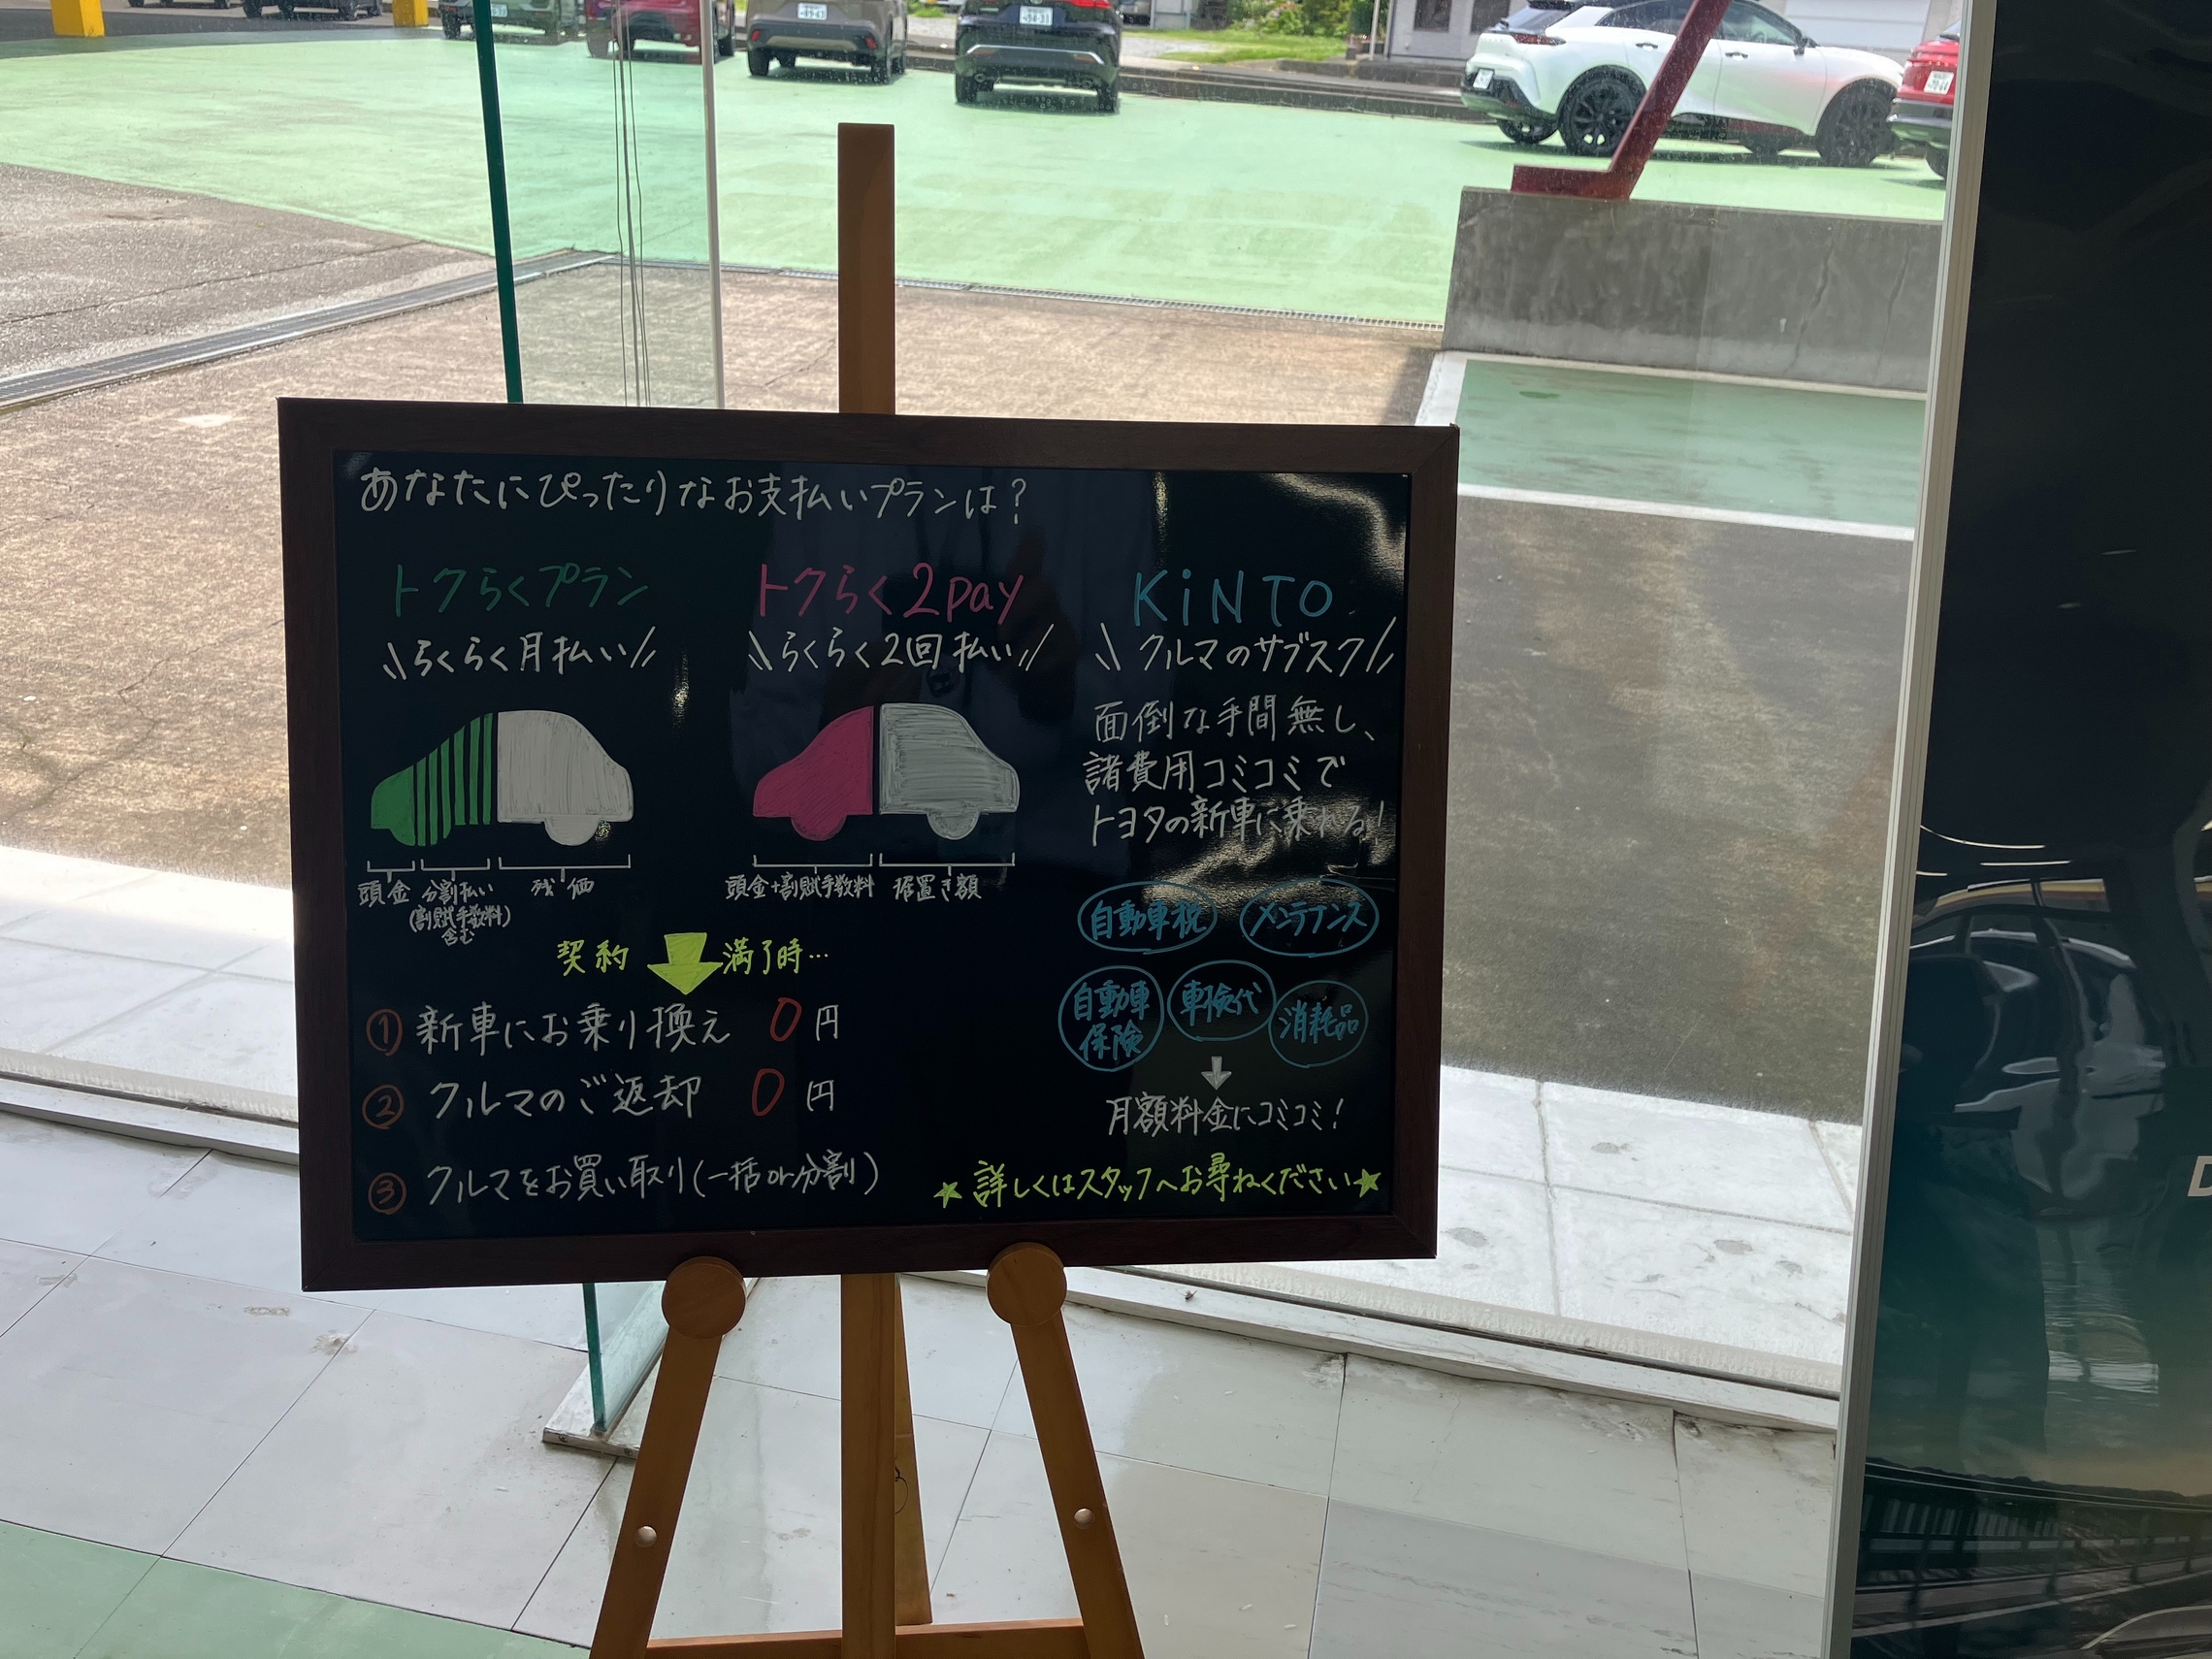 あなたにぴったりなお支払いプランは?
トクらくプラン
\\らくらく月払い//
頭金
分割払い
(割賦手数料)
含む
残価
トクらく2pay
\\らくらく2回払い//
頭金+割賦手数料
据置き額
契約
満了時…
① 新車にお乗り換え 0円
② クルマのご返却 0円
③ クルマをお買い取り(一括or分割)
KiNTO
\\クルマのサブスク//
面倒な手間無し、
諸費用コミコミで
トヨタの新車に乗れる!
自動車税
メンテナンス
自動車
保険
車検代
消耗品
月額料金にコミコミ!
★詳しくはスタッフへお尋ねください★